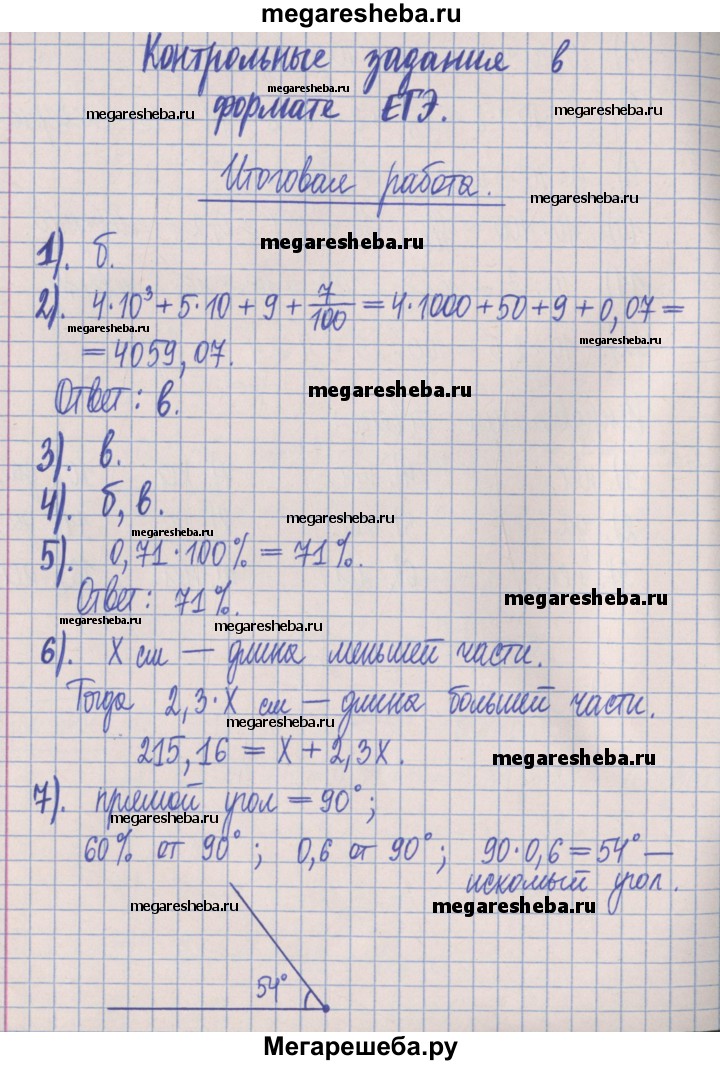 megaresheba.ru
Контрольные задания в
megaresheba.ru
формате ЕГЭ.
megaresheba.ru
megaresheba.ru
Итоговая работа.
megaresheba.ru
1). б.
megaresheba.ru
2). 4·10³+5·10+9+7/100=4·1000+50+9+0,07=
megaresheba.ru
megaresheba.ru
=4059,07.
Ответ: в.
megaresheba.ru
3). в.
4). б, в.
megaresheba.ru
megaresheba.ru
5). 0,71·100%=71%.
Ответ: 71%.
megaresheba.ru
megaresheba.ru
megaresheba.ru
6). X см — длина меньшей части.
Тогда 2,3·X см — длина большей части.
megaresheba.ru
215,16 = X + 2,3X.
megaresheba.ru
7). прямой угол = 90°;
megaresheba.ru
60% от 90°; 0,6 от 90°; 90·0,6=54° —
искомый угол.
megaresheba.ru
megaresheba.ru
54°
Мегарешеба.ру